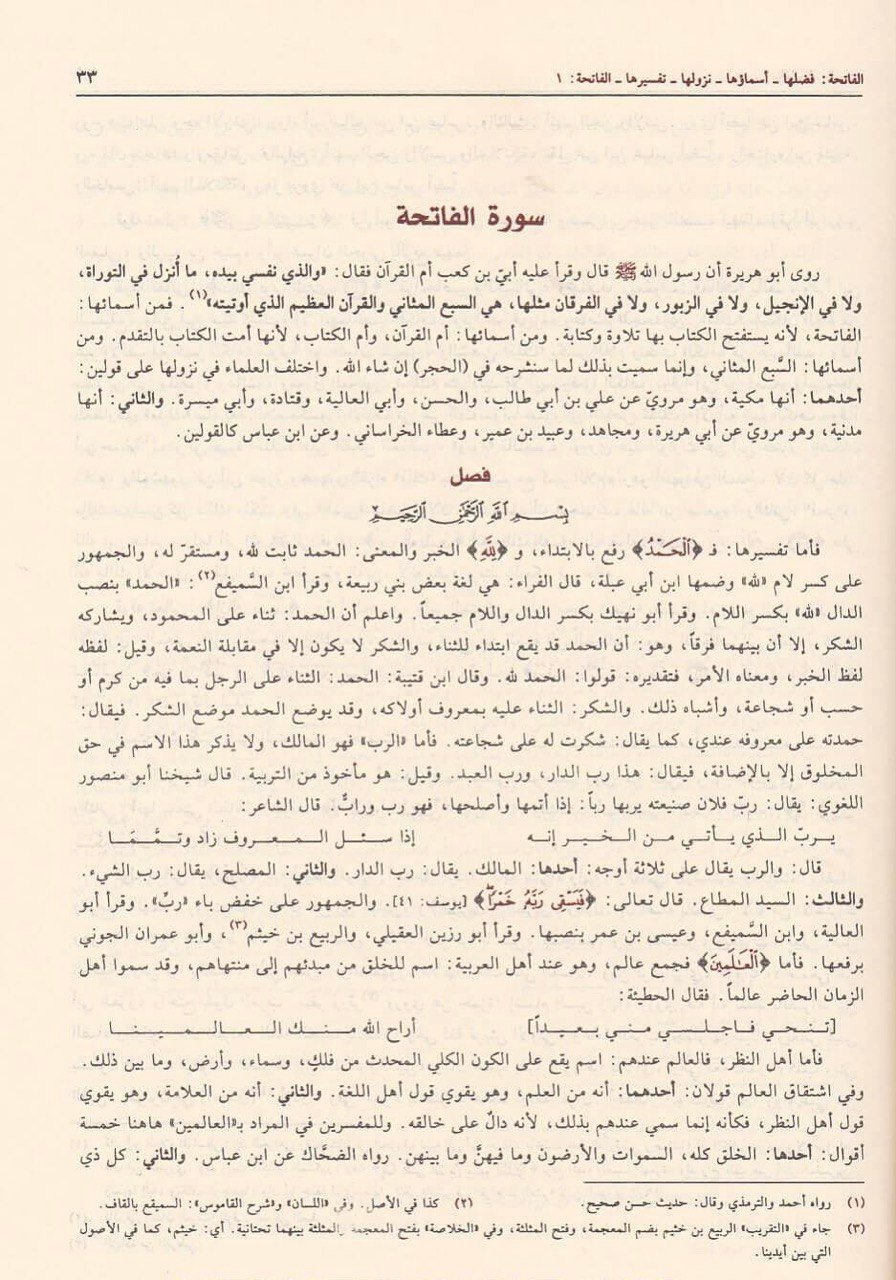 الفاتحة: فضلها ـ أسماؤها ـ نزولها ـ تفسيرها ـ الفاتحة: ١ ٣٣
سورة الفاتحة
روى أبو هريرة أن رسول الله ﷺ قال وقرأ عليه أبيّ بن كعب أم القرآن فقال: «والذي نفسي بيده، ما أُنزل في التوراة،
ولا في الإنجيل، ولا في الزبور، ولا في الفرقان مثلها، هي السبع المثاني والقرآن العظيم الذي أوتيته»(١). فمن أسمائها:
الفاتحة، لأنه يستفتح الكتاب بها تلاوة وكتابة. ومن أسمائها: أم القرآن، وأم الكتاب، لأنها أمت الكتاب بالتقدم. ومن
أسمائها: السَّبع المثاني، وإنما سميت بذلك لما سنشرحه في (الحجر) إن شاء الله. واختلف العلماء في نزولها على قولين:
أحدهما: أنها مكية، وهو مرويّ عن علي بن أبي طالب، والحسن، وأبي العالية، وقتادة، وأبي ميسرة. والثاني: أنها
مدنية، وهو مرويّ عن أبي هريرة، ومجاهد، وعبيد بن عمير، وعطاء الخراساني. وعن ابن عباس كالقولين.
فصل
بِسْمِ اللَّهِ الرَّحْمَٰنِ الرَّحِيمِ
فأما تفسيرها: فـ ﴿اَلْحَمْدُ﴾ رفع بالابتداء، و ﴿لِلَّهِ﴾ الخبر والمعنى: الحمد ثابت لله، ومستقرّ له، والجمهور
على كسر لام «لله» وضمها ابن أبي عبلة، قال الفراء: هي لغة بعض بني ربيعة، وقرأ ابن السَّميفع(٢): «الحمد» بنصب
الدال «لله» بكسر اللام. وقرأ أبو نهيك بكسر الدال واللام جميعاً. واعلم أن الحمد: ثناء على المحمود، ويشاركه
الشكر، إلا أن بينهما فرقاً، وهو: أن الحمد قد يقع ابتداء للثناء، والشكر لا يكون إلا في مقابلة النعمة، وقيل: لفظه
لفظ الخبر، ومعناه الأمر، فتقديره: قولوا: الحمد لله. وقال ابن قتيبة: الحمد: الثناء على الرجل بما فيه من كرم أو
حسب أو شجاعة، وأشباه ذلك. والشكر: الثناء عليه بمعروف أولاكه، وقد يوضع الحمد موضع الشكر. فيقال:
حمدته على معروفه عندي، كما يقال: شكرت له على شجاعته. فأما «الرب» فهو المالك، ولا يذكر هذا الاسم في حق
المخلوق إلا بالإضافة، فيقال: هذا رب الدار، ورب العبد. وقيل: هو مأخوذ من التربية. قال شيخنا أبو منصور
اللغوي: يقال: ربّ فلان صنيعته يربها رباً: إذا أتمها وأصلحها، فهو رب ورابٌّ. قال الشاعر:
يـربّ الذي يـأتي من الخير إنه إذا سئل المعروف زاد وتمَّما
قال: والرب يقال على ثلاثة أوجه: أحدها: المالك. يقال: رب الدار. والثاني: المصلح، يقال: رب الشيء.
والثالث: السيد المطاع. قال تعالى: ﴿فَيَسْقِى رَبَّهُۥ خَمْرًا﴾ [يوسف: ٤١]. والجمهور على خفض باء «ربِّ». وقرأ أبو
العالية، وابن السَّميفع، وعيسى بن عمر بنصبها. وقرأ أبو رزين العقيلي، والربيع بن خيثم(٣)، وأبو عمران الجوني
برفعها. فأما ﴿اَلْعَـٰلَمِينَ﴾ فجمع عالم، وهو عند أهل العربية: اسم للخلق من مبدئهم إلى منتهاهم، وقد سموا أهل
الزمان الحاضر عالماً. فقال الحطيئة:
[تنحي فاجلسي مني بعيداً] أراح الله منك العالمينا
فأما أهل النظر، فالعالم عندهم: اسم يقع على الكون الكلي المحدث من فلكٍ، وسماء، وأرض، وما بين ذلك.
وفي اشتقاق العالم قولان: أحدهما: أنه من العلم، وهو يقوي قول أهل اللغة. والثاني: أنه من العلامة، وهو يقوي
قول أهل النظر، فكأنه إنما سمي عندهم بذلك، لأنه دالٌ على خالقه. وللمفسرين في المراد بـ«العالمين» هاهنا خمسة
أقوال: أحدها: الخلق كله، السموات والأرضون وما فيهنَّ وما بينهن. رواه الضحَّاك عن ابن عباس. والثاني: كل ذي
(١) رواه أحمد والترمذي وقال: حديث حسن صحيح. (٢) كذا في الأصل. وفي «اللسان» و«شرح القاموس»: السميقع بالقاف.
(٣) جاء في «التقريب» الربيع بن خثيم بضم المعجمة، وفتح المثلثة، وفي «الخلاصة» بفتح المعجمة والمثلثة بينهما تحتانية. أي: خيثم، كما في الأصول
التي بين أيدينا.